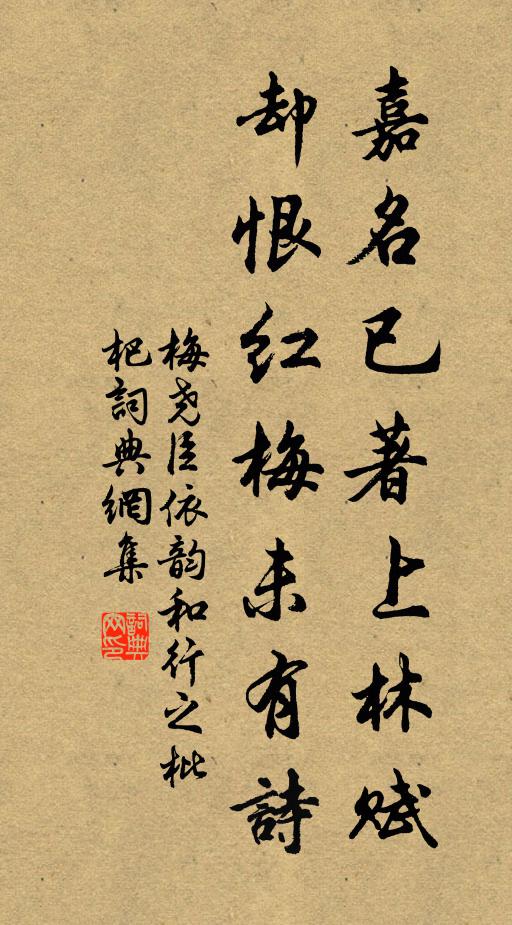 嘉名已著上林赋
却恨红梅未有詩
梅尧臣依韵和行之枇
杷詞典網集
詞典网印